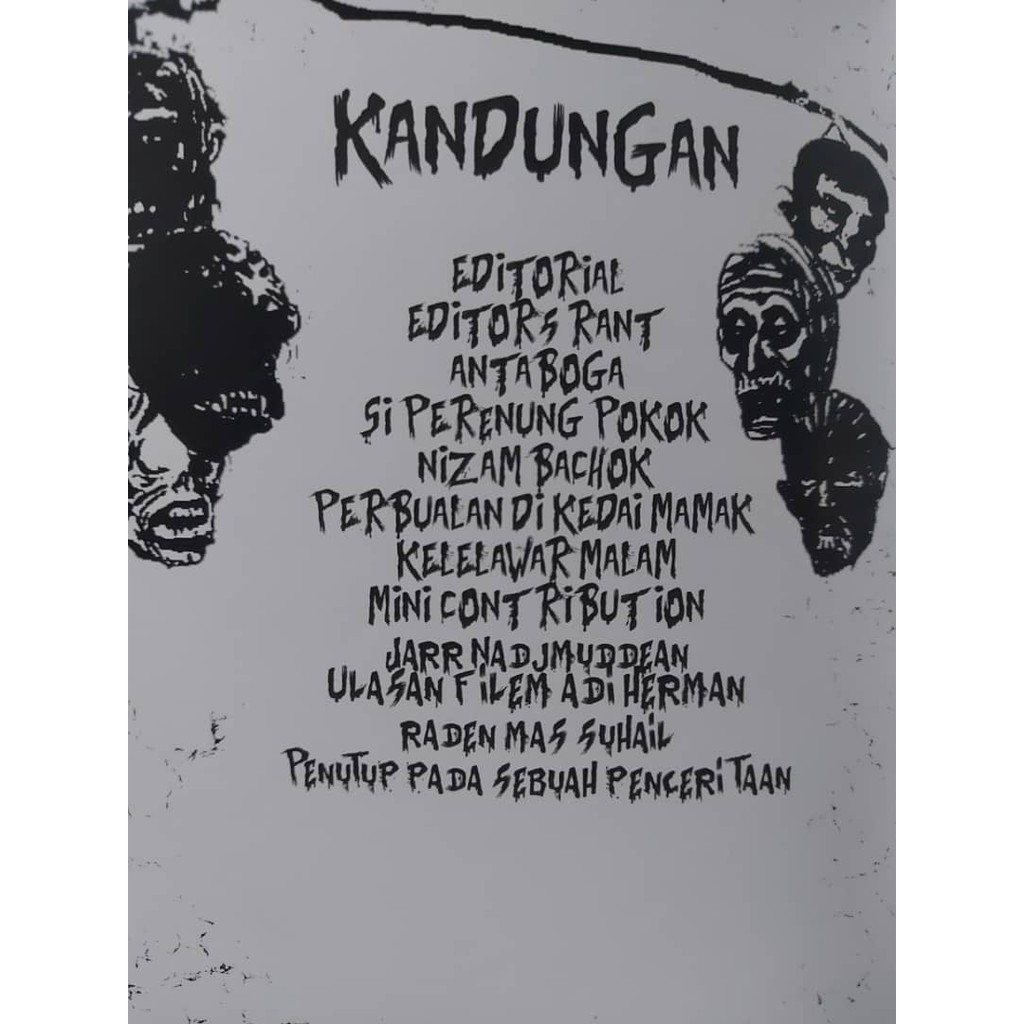 KANDUNGAN
EDiTORiAL
EDiTORS RANT
ANTABOGA
Si PERENUNG POKOK
NiZAM BACHOK
PERBUALAN Di KEDAi MAMAK
KELELAWAR MALAM
MiNi CONTRiBUTiON
JARR NADJMUDDEAN
ULASAN FiLEM ADi HERMAN
RADEN MAS SUHAiL
PENUTUP PADA SEBUAH PENCERiTAAN